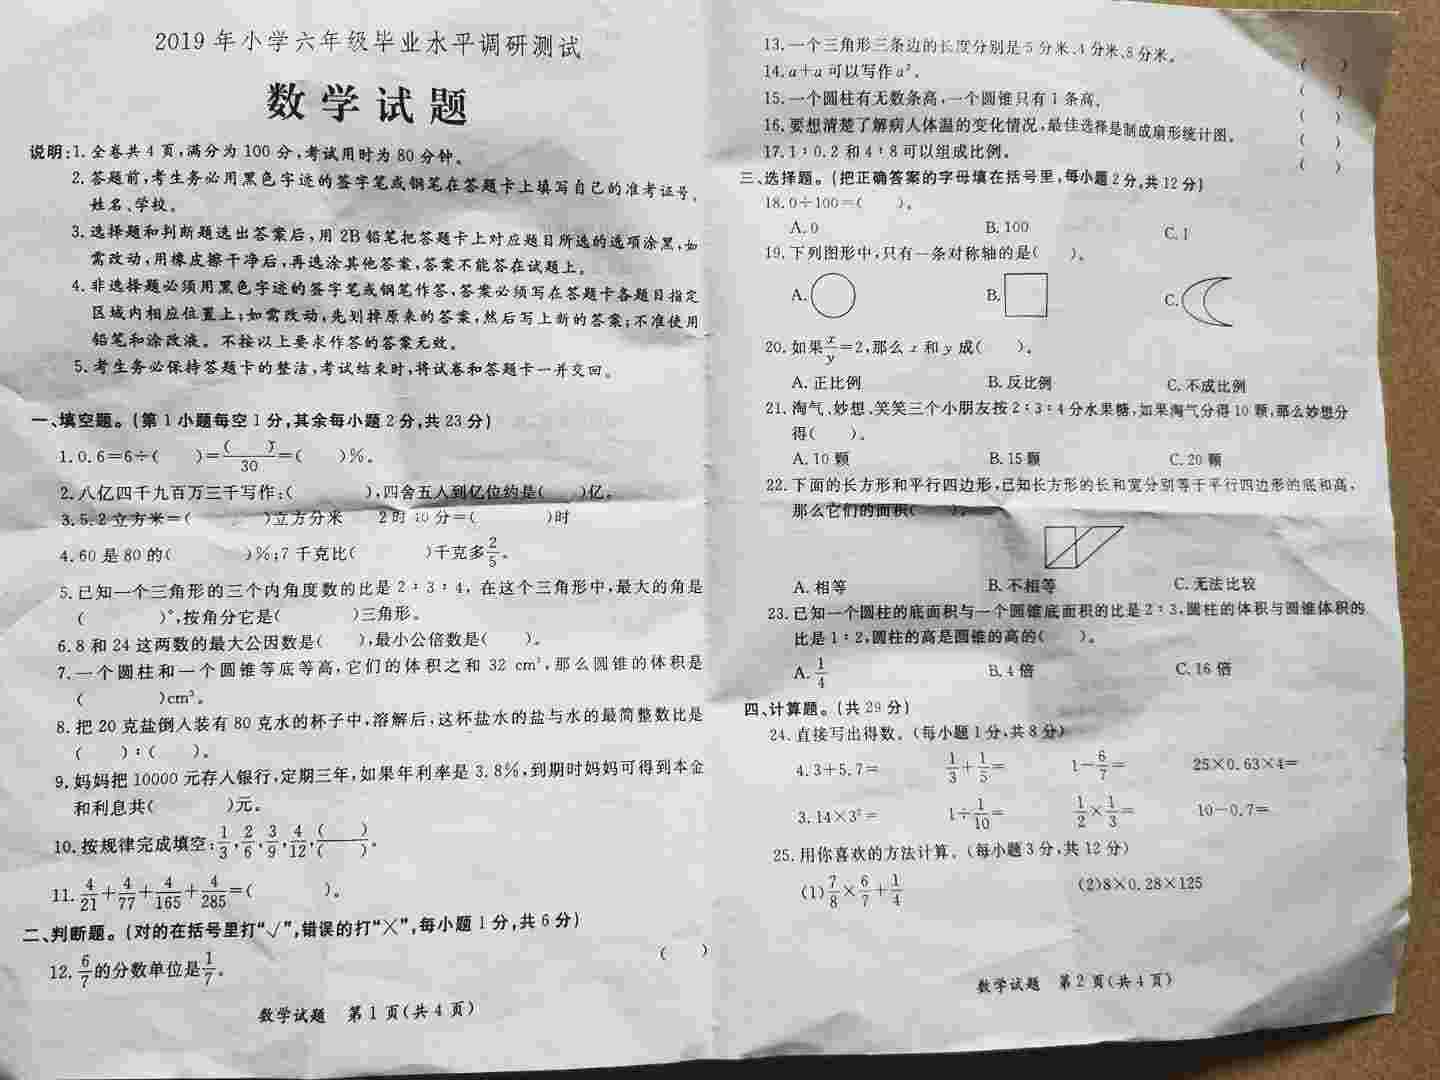 2019 年小学六年级毕业水平调研测试
数学试题
说明:1.全卷共 4 页,满分为 100 分,考试用时为 80 分钟。
2.答题前,考生务必用黑色字迹的签字笔或钢笔在答题卡上填写自己的准考证号、
姓名、学校。
3.选择题和判断题选出答案后,用 2B 铅笔把答题卡上对应题目所选的选项涂黑,如
需改动,用橡皮擦干净后,再选涂其他答案,答案不能答在试题上。
4.非选择题必须用黑色字迹的签字笔或钢笔作答,答案必须写在答题卡各题目指定
区域内相应位置上;如需改动,先划掉原来的答案,然后写上新的答案;不准使用
铅笔和涂改液。不按以上要求作答的答案无效。
5.考生务必保持答题卡的整洁,考试结束时,将试卷和答题卡一并交回。
一、填空题。(第 1 小题每空 1 分,其余每小题 2 分,共 23 分)
1.0.6=6÷( )=( )/30=( )%。
2.八亿四千九百万三千写作:( ),四舍五入到亿位约是( )亿。
3.5.2 立方米=( )立方分米 2 时 40 分=( )时
4.60 是 80 的( )%;7 千克比( )千克多2/5。
5.已知一个三角形的三个内角度数的比是 2:3:4,在这个三角形中,最大的角是
( )°,按角分它是( )三角形。
6.8 和 24 这两数的最大公因数是( ),最小公倍数是( )。
7.一个圆柱和一个圆锥等底等高,它们的体积之和 32 cm³,那么圆锥的体积是
( )cm³。
8.把 20 克盐倒入装有 80 克水的杯子中,溶解后,这杯盐水的盐与水的最简整数比是
( ):( )。
9.妈妈把 10000 元存入银行,定期三年,如果年利率是 3.8%,到期时妈妈可得到本金
和利息共( )元。
10.按规律完成填空:1/3,2/6,3/9,4/12,( )/( )。
11.4/21+4/77+4/165+4/285=( )。
二、判断题。(对的在括号里打“√”,错误的打“×”,每小题 1 分,共 6 分)
12.6/7的分数单位是1/7。 ( )
数学试题 第 1 页(共 4 页)
13.一个三角形三条边的长度分别是 5 分米、4 分米、8 分米。 ( )
14.a+a 可以写作 a²。 ( )
15.一个圆柱有无数条高,一个圆锥只有 1 条高。 ( )
16.要想清楚了解病人体温的变化情况,最佳选择是制成扇形统计图。 ( )
17.1:0.2 和 4:8 可以组成比例。 ( )
三、选择题。(把正确答案的字母填在括号里,每小题 2 分,共 12 分)
18.0÷100=( )。
A.0 B.100 C.1
19.下列图形中,只有一条对称轴的是( )。
A. B. C.
20.如果x/y=2,那么 x 和 y 成( )。
A.正比例 B.反比例 C.不成比例
21.淘气、妙想、笑笑三个小朋友按 2:3:4 分水果糖,如果淘气分得 10 颗,那么妙想分
得( )。
A.10 颗 B.15 颗 C.20 颗
22.下面的长方形和平行四边形,已知长方形的长和宽分别等于平行四边形的底和高,
那么它们的面积( )。
A.相等 B.不相等 C.无法比较
23.已知一个圆柱的底面积与一个圆锥底面积的比是 2:3,圆柱的体积与圆锥体积的
比是 1:2,圆柱的高是圆锥的高的( )。
A.1/4 B.4 倍 C.16 倍
四、计算题。(共 29 分)
24.直接写出得数。(每小题 1 分,共 8 分)
4.3+5.7= 1/3+1/5= 1-6/7= 25×0.63×4=
3.14×3²= 1÷1/10= 1/2×1/3= 10-0.7=
25.用你喜欢的方法计算。(每小题 3 分,共 12 分)
(1)7/8×6/7+1/4 (2)8×0.28×125
数学试题 第 2 页(共 4 页)